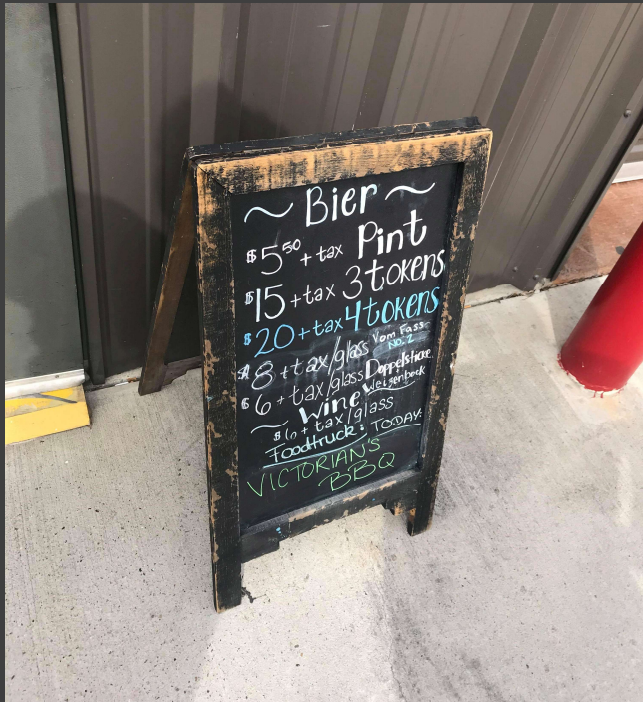 ~ Bier ~
$5⁵⁰ + tax Pint
$15 + tax 3 tokens
$20 + tax 4 tokens
$8 + tax/glass Vom Fass No. 2
$6 + tax/glass Doppelsticke Weizenbock
~ Wine
+ tax/glass
Foodtruck: TODAY:
VICTORIAN'S
BBQ